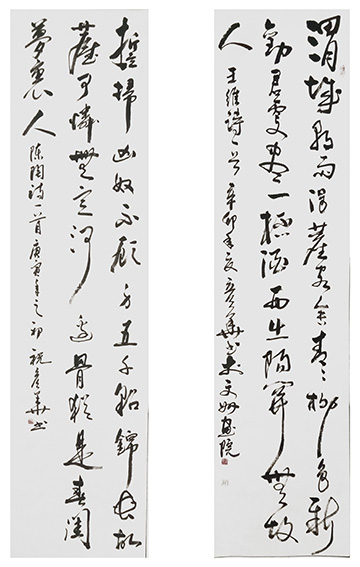 渭城朝雨浥塵客舍青々柳色新
勸君更盡一桮酒西出陽關無故
人 王維詩一首 辛卯年夏 彦華书於文畫院
誓掃匈奴不顧身五千貂錦喪胡
塵可憐無定河邊骨猶是春閨
夢裏人 陳陶詩一首庚寅年之初 祝彦華书